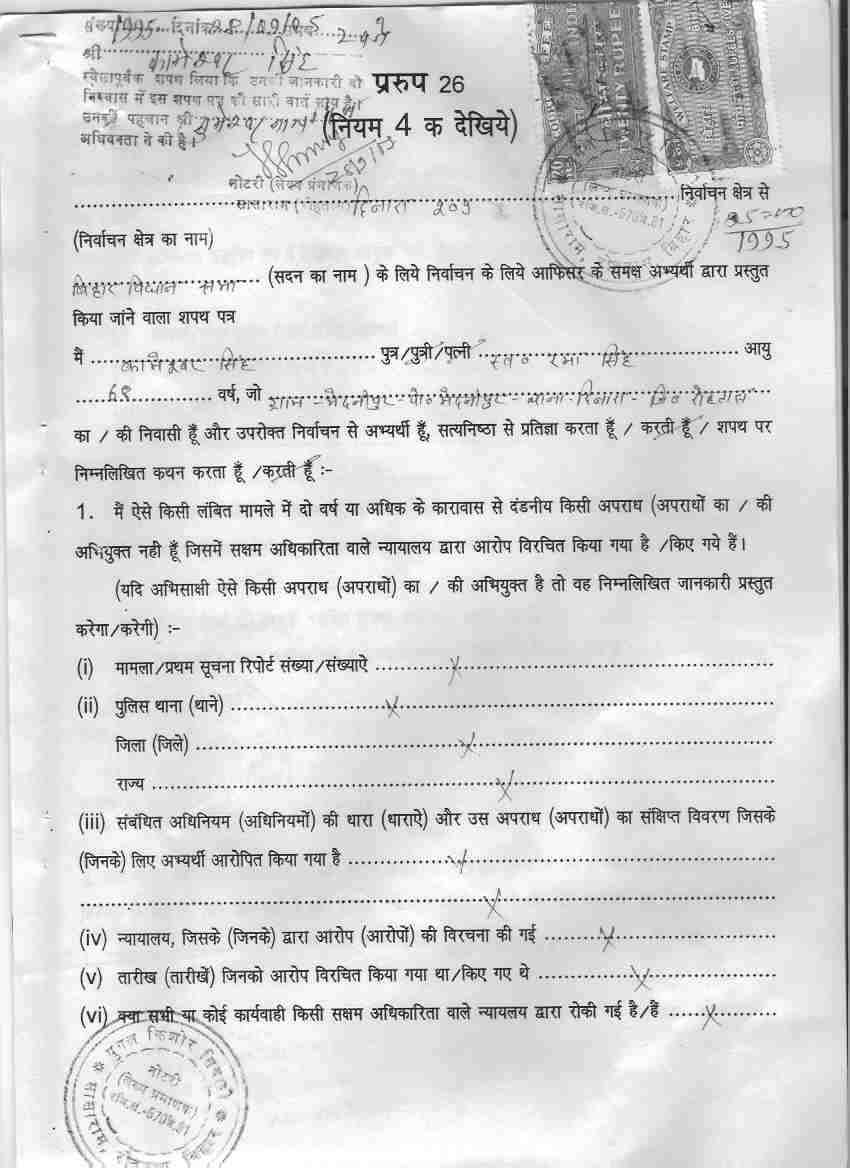 संख्या 1995 दिनांक
श्री कामेश्वर सिंह
स्वेच्छापूर्वक शपथ लिया कि उनकी जानकारी वो
विश्वास में इस शपथ पत्र की सारी बातें सत्य है।
उनकी पहचान श्री
अधिवक्ता ने की है।
प्ररुप 26
(नियम 4 क देखिये)
नोटरी (लेख्य प्रमाणक)
दिनारा निर्वाचन क्षेत्र से
1995
(निर्वाचन क्षेत्र का नाम)
बिहार विधान सभा (सदन का नाम ) के लिये निर्वाचन के लिये आफिसर के समक्ष अभ्यर्थी द्वारा प्रस्तुत
किया जांने वाला शपथ पत्र
मैं कामेश्वर सिंह पुत्र/पुत्री/पत्नी स्व० रमा सिंह आयु
68 वर्ष, जो ग्राम-मैदनीपुर-पो०मैदनीपुर-थाना-दिनारा-जि० रोहतास
का / की निवासी हूँ और उपरोक्त निर्वाचन से अभ्यर्थी हूँ, सत्यनिष्ठा से प्रतिज्ञा करता हूँ / करती हूँ / शपथ पर
निम्नलिखित कथन करता हूँ /करती हूँ :-
1. मैं ऐसे किसी लंबित मामले में दो वर्ष या अधिक के कारावास से दंडनीय किसी अपराध (अपराधों का / की
अभियुक्त नही हूँ जिसमें सक्षम अधिकारिता वाले न्यायालय द्वारा आरोप विरचित किया गया है /किए गये हैं।
(यदि अभिसाक्षी ऐसे किसी अपराध (अपराधों) का / की अभियुक्त है तो वह निम्नलिखित जानकारी प्रस्तुत
करेगा/करेगी) :-
(i) मामला/प्रथम सूचना रिपोर्ट संख्या/संख्याऐ X
(ii) पुलिस थाना (थाने) X
जिला (जिले) X
राज्य X
(iii) संबंधित अधिनियम (अधिनियमों) की धारा (धाराऐ) और उस अपराध (अपराधों) का संक्षिप्त विवरण जिसके
(जिनके) लिए अभ्यर्थी आरोपित किया गया है X
X
(iv) न्यायालय, जिसके (जिनके) द्वारा आरोप (आरोपों) की विरचना की गई X
(v) तारीख (तारीखें) जिनको आरोप विरचित किया गया था/किए गए थे X
(vi) क्या सभी या कोई कार्यवाही किसी सक्षम अधिकारिता वाले न्यायलय द्वारा रोकी गई है/हैं X
नोटरी
(लेख्य प्रमाणक)
सासाराम, रोहतास बिहार